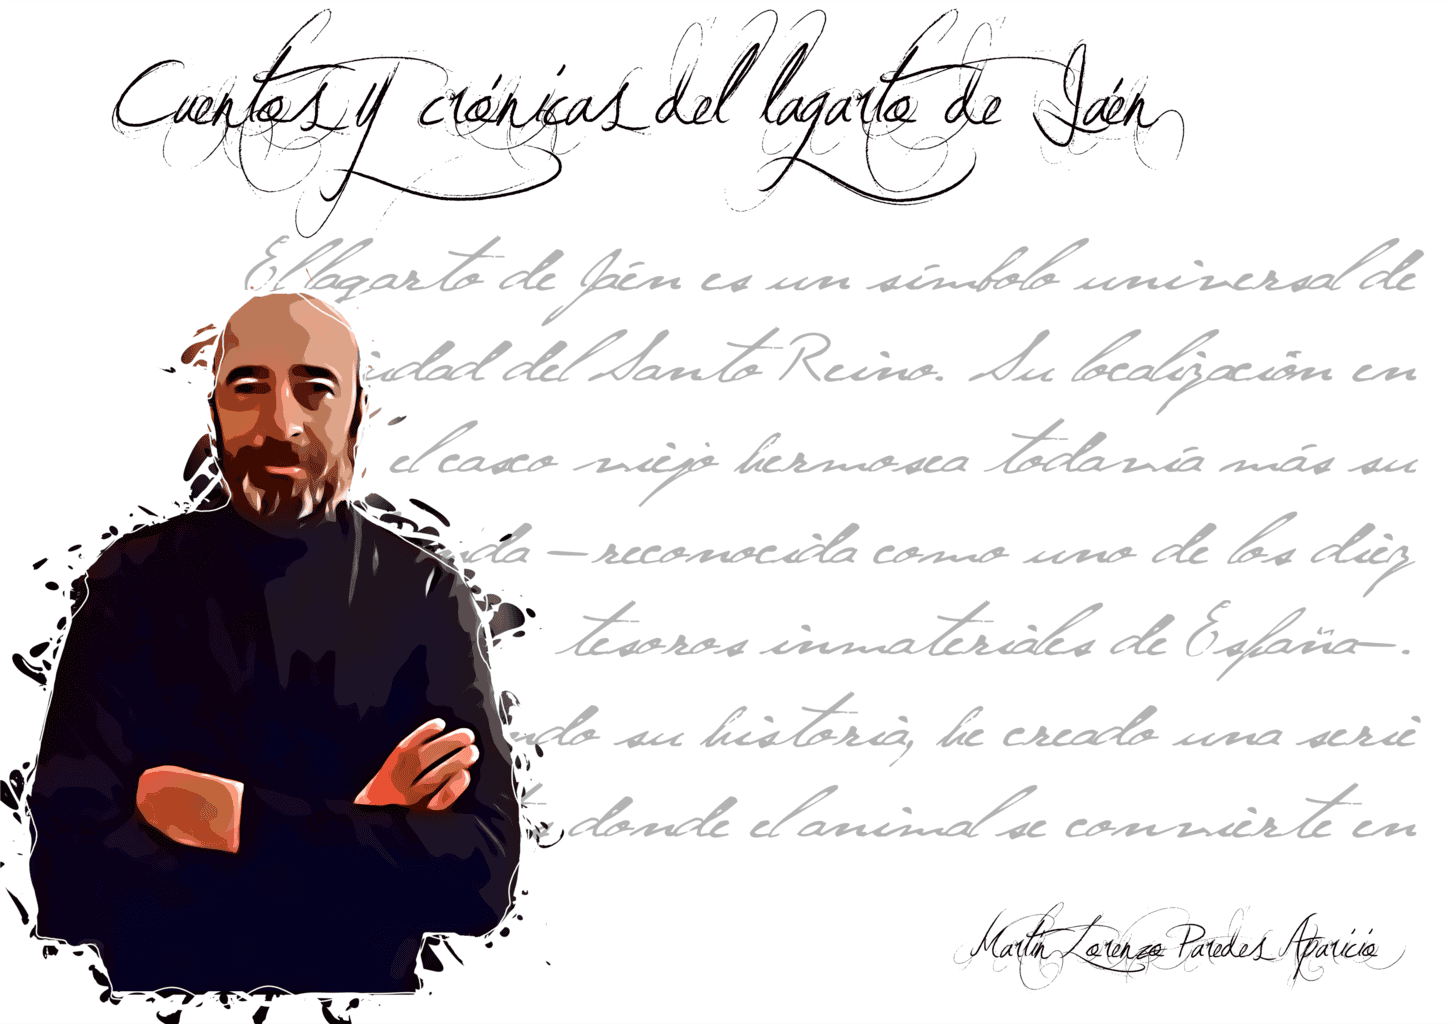 Cuentos y crónicas del lagarto de Jaén
El lagarto de Jaén es un símbolo universal de
del Santo Reino. Su localización en
el casco viejo hermosea todavía más su
—reconocida como uno de los diez
tesoros inmateriales de España—.
su historia, he creado una serie
donde el animal se convierte en
Martín Lorenzo Paredes Aparicio